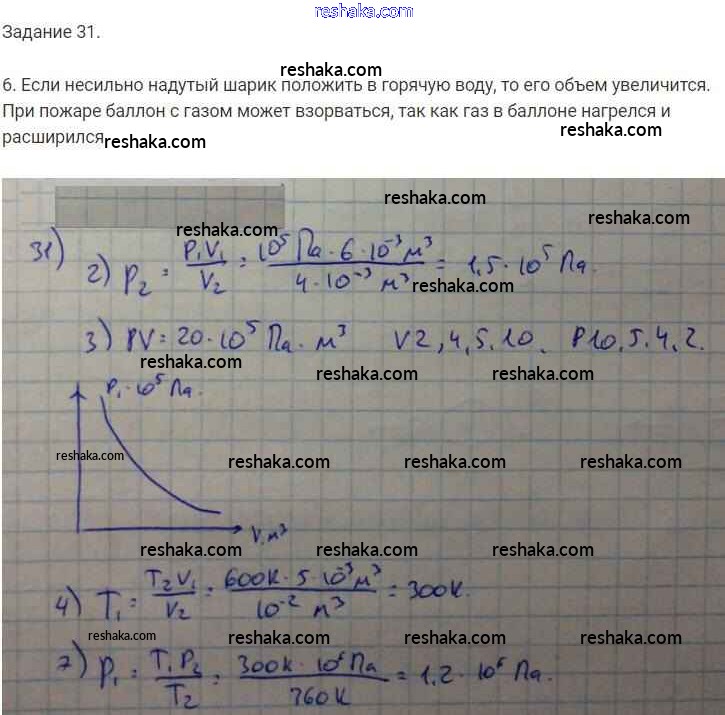 reshaka.com
Задание 31.
reshaka.com
6. Если несильно надутый шарик положить в горячую воду, то его объем увеличится.
При пожаре баллон с газом может взорваться, так как газ в баллоне нагрелся и
reshaka.com
расширился
reshaka.com
reshaka.com
reshaka.com
reshaka.com
31) 2) P₂ = P₁V₁ / V₂ = 10⁵ Па · 6 · 10⁻³ м³ / 4 · 10⁻³ м³ = 1,5 · 10⁵ Па.
reshaka.com
3) PV = 20 · 10⁵ Па · м³ V 2, 4, 5, 10. P 10, 5, 4, 2.
reshaka.com
reshaka.com reshaka.com
P, · 10⁵ Па.
reshaka.com
reshaka.com reshaka.com reshaka.com
V, м³
reshaka.com reshaka.com
4) T₁ = T₂V₁ / V₂ = 600К · 5 · 10⁻³ м³ / 10⁻² м³ = 300К.
reshaka.com reshaka.com reshaka.com reshaka.com
7) P₁ = T₁P₂ / T₂ = 300К · 10⁶ Па / 760К = 1,2 · 10⁶ Па.